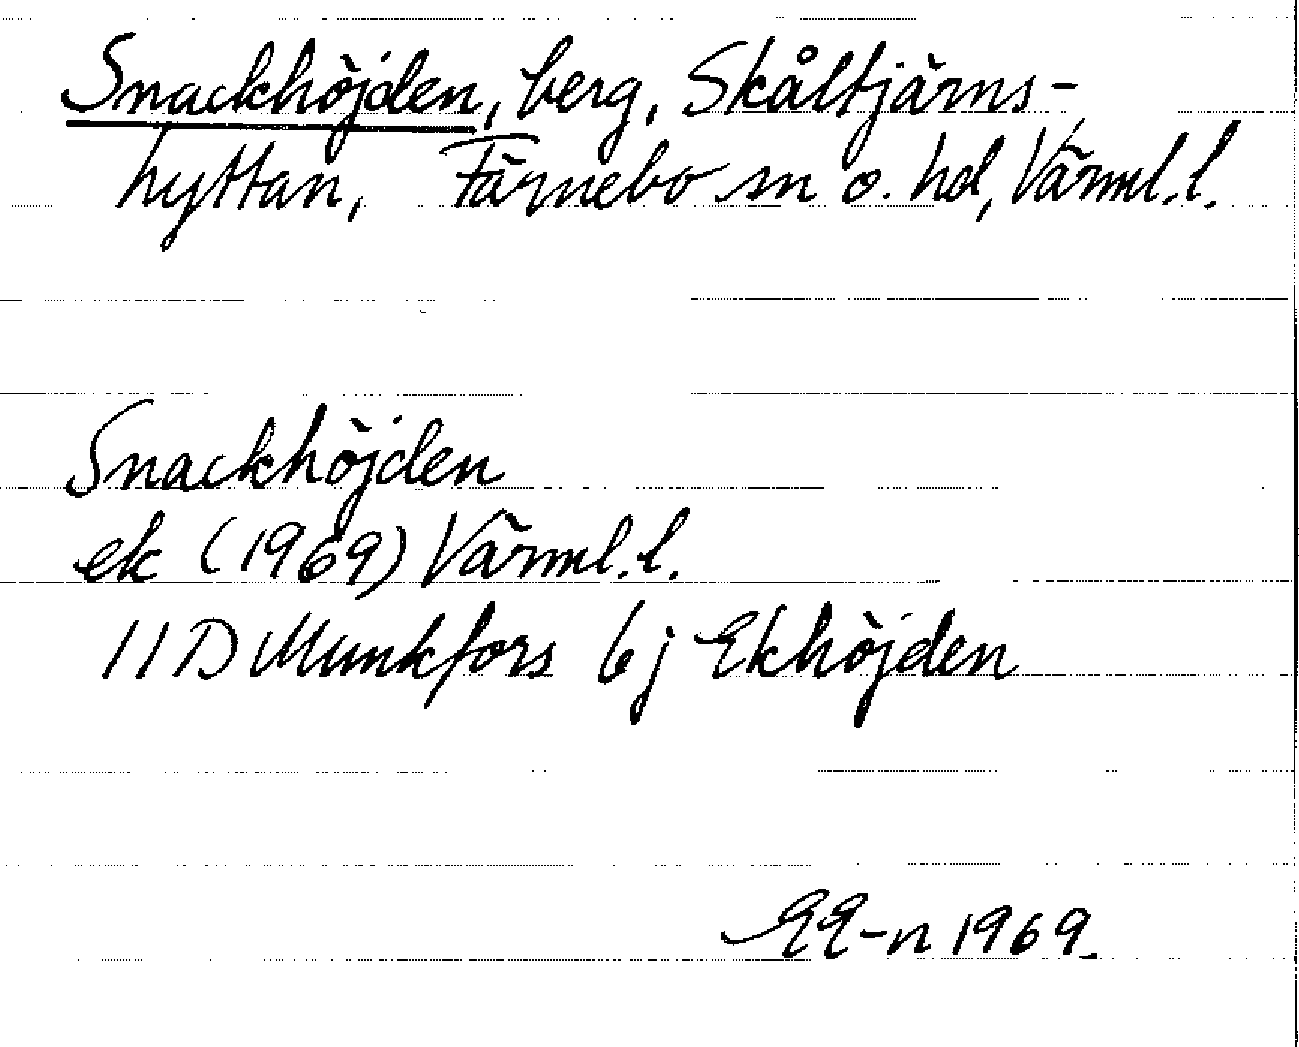 Snackhöjden, berg, Skåltjärns-
hyttan, Färnebo sn o. hd, Värml.l.
Snackhöjden
ek (1969) Värml.l.
11D Munkfors 6j Ekhöjden
EE-n 1969.